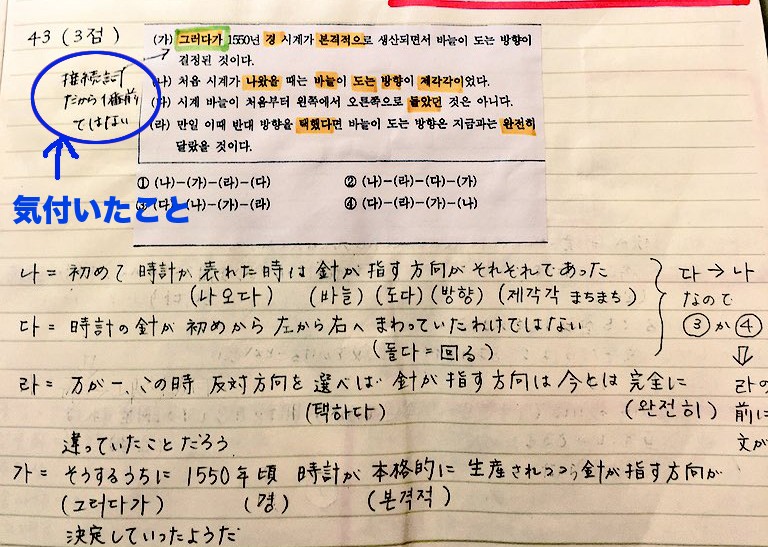 43 (3점)
(가) 그러다가 1550년 경 시계가 본격적으로 생산되면서 바늘이 도는 방향이
결정된 것이다.
(나) 처음 시계가 나왔을 때는 바늘이 도는 방향이 제각각이었다.
(다) 시계 바늘이 처음부터 왼쪽에서 오른쪽으로 돌았던 것은 아니다.
(라) 만일 이때 반대 방향을 택했다면 바늘이 도는 방향은 지금과는 완전히
달랐을 것이다.
接続詞
だから1番前
ではない
気付いたこと
① (나)-(가)-(라)-(다)
② (나)-(라)-(다)-(가)
③ (다)-(나)-(가)-(라)
④ (다)-(라)-(가)-(나)
나 = 初めて 時計が 表れた時は 針が 指す方向が それぞれであった
(나오다) (바늘) (도다) (방향) (제각각 まちまち)
다 = 時計の針が 初めから 左から右へ まわっていたわけではない
(돌다=回る)
다→나
なので
③か④
라 = 万が一、この時 反対方向を 選べば 針が指す方向は 今とは 完全に
(택하다) (완전히)
違っていたことだろう
라の
前に
文が
가 = そうするうちに 1550年頃 時計が 本格的に 生産されつつ 針が指す方向が
(그러다가) (경) (본격적)
決定していったようだ